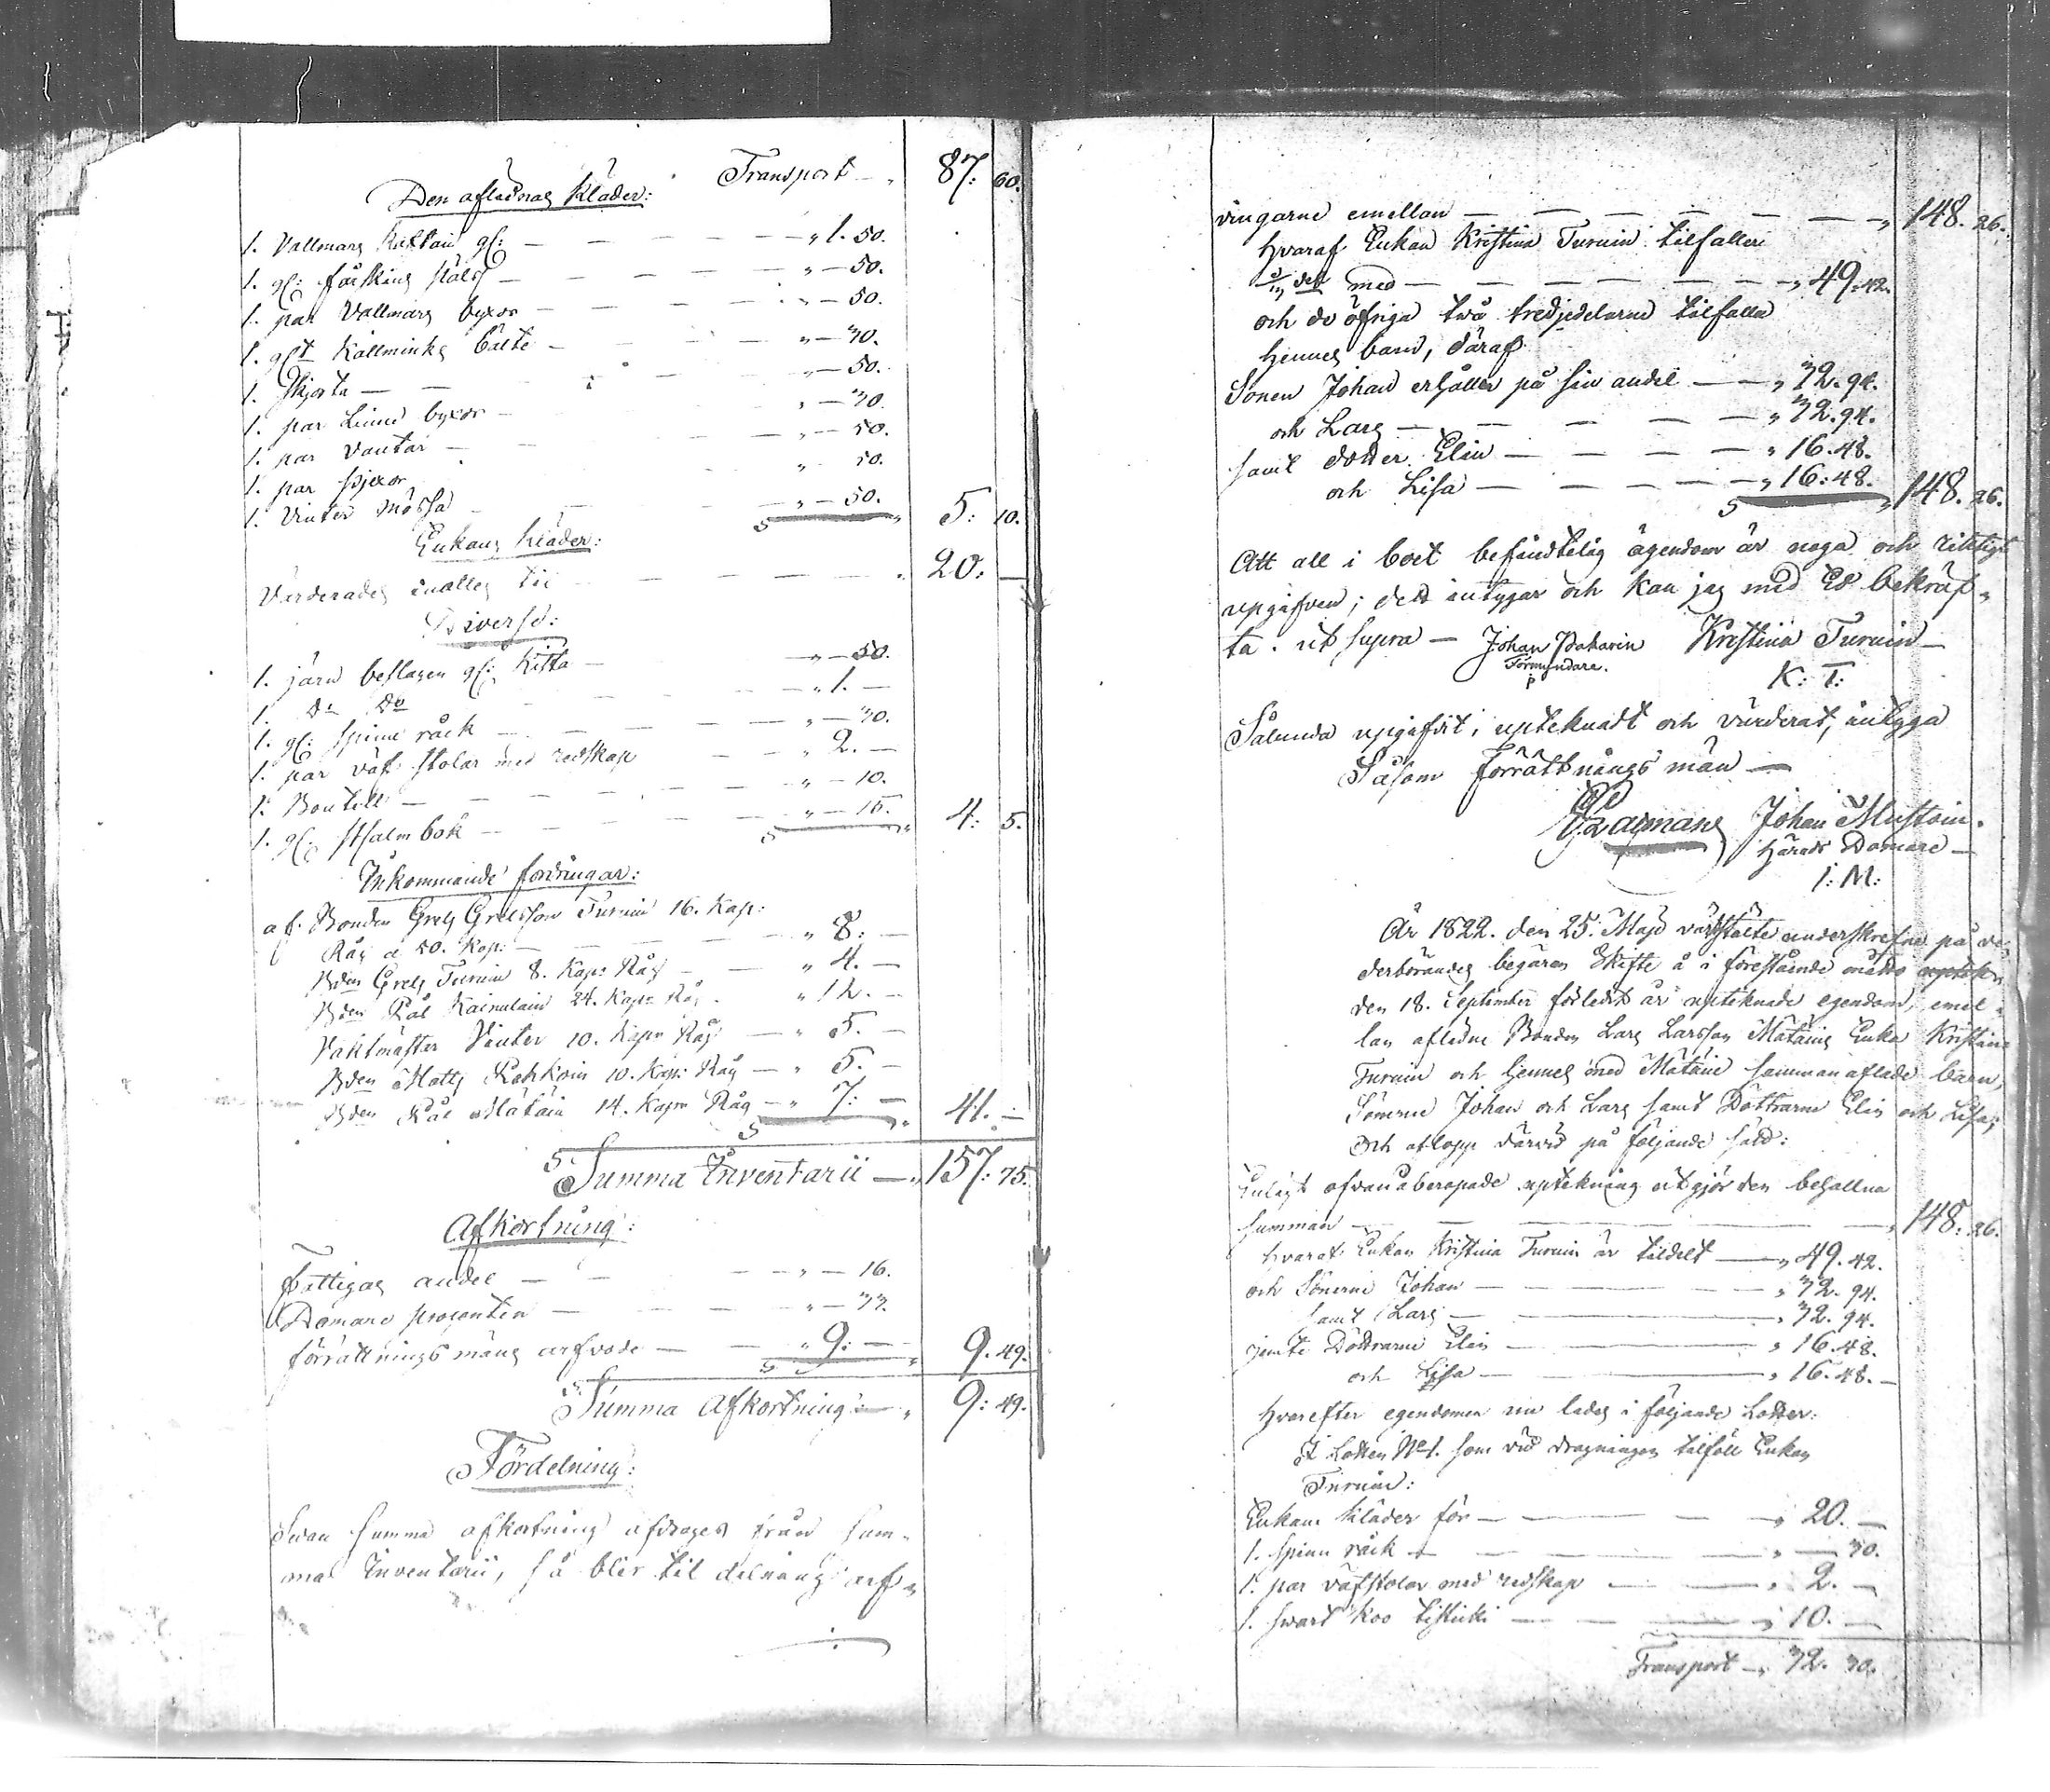 Transport — „ 87: 60.
Den aflednas Kläder:
1. Vallmans Kaftan gl: — — — — „ 1. 50.
1. gl: fårskins — — — — „ — 50.
1. par Vallmans byxor — — — „ — 50.
1. glt Kallminks bälte — — — „ — 30.
1. Skjorta — — — — „ — 50.
1. par Linne byxor — — „ — 30.
1. par Vantar — — — „ — 50.
1. par — „ 50.
1. Vinter Mössa — — — „ — 50. 5: 10.
Enkans Kläder:
Värderades inalles til — — — — — „ 20: —
Diverse:
1. järn beslagen gl: Kista — — „ — 50.
1. do do — — — — „ 1. —
1. gl: spinn råck — — — — „ — 30.
1. par väf stolar med redskap — — „ 2. —
1. Boutell — — — — — „ — 10.
1. gl: Psalm bok — — — — — „ — 15. 4: 5.
Inkommande fordringar:
af Bonden Grels Grelsson Turuin 16. Kap:
Råg a 50. Kop: — — — — „ 8: —
Bden Grels Turuin 8. Kapr Råg — — „ 4. —
Bden Pål Kainulain 24. Kapr Råg — „ 12. —
Vaktmäster Vinter 10. Kapr Råg — „ 5. —
Bden Matts 10. Kapr Råg — „ 5. —
Bden Pål Mätäin 14. Kapr Råg — „ 7: — 41. —
Summa Inventarii — „ 157: 75.
Afkortning:
Fattigas andel — — — „ — 16.
Domare procenten — — — — „ — 33.
förrättnings mäns arfvode — — „ 9: — 9. 49.
Summa Afkortning — „ 9: 49.
Fördelning:
summa afkortning afdrages från sum-
mal Inventarii, så blir til delning arf-
vingarne emellan — — — — — — „ 148. 26.
hvaraf Enkan Kristina Turuin tilfaller
1/3 del med — — — — — — „ 49. 42.
och de öfriga två tredjedelarne tilfalla
hennes barn, däraf
Sonen Johan erhåller på sin andel — — „ 32. 94.
och Lars — — — — — „ 32. 94.
samt dotter Elin — — — — „ 16. 48.
och Lisa — — — — — „ 16: 48. 148. 26.
Att all i boet befindtelig ägendom är noga och riktigt
upgifven; det intygar och kan jag med Ed bekräf-
ta. ut supra — Johan Kristina Turuin —
Förmyndare. K: T:
Sålunda upgifvit, uptecknadt och värderat, intyga
Såsom förrättnings män —
Johan Mustoin.
Härads Domare —
I: M:
År 1822. den 25: Maji värkstälte underskrefne på ve-
derbörandes begäran Skifte å i förestående måtto
den 18. September förledit år uptecknade egendom, emel-
lan aflidne Bonden Lars Larsson Mätäins Enka Kristina
Turuin och hennes med Mätäin sammanaflade barn,
Sönerne Johan och Lars samt Döttrarne Elin och Lisa;
Och aflopp därvid på följande sätt:
Enligt ofvanåberopade uptekning utgjör den behållna
summan — — — — „ 148: 26.
hvaraf Enkan Kristina Turuin är tildelt — „ 49. 42.
och Sönerne Johan — — — „ 32. 94.
samt Lars — — — „ 32. 94.
jemte Döttrarne Elin — — — „ 16. 48.
och Lisa — — — „ 16. 48. —
hvarefter egendomen nu lades i följande Lotter:
I Lotten No 1. som vid dragningen tilföll Enkan
Turuin:
Enkans kläder för — — — „ 20. —
1. spinn råck — — — „ — 30.
1. par väfstolar med redskap — — „ 2. —
1. svart koo — — „ 10. —
Transport — „ 32. 30.